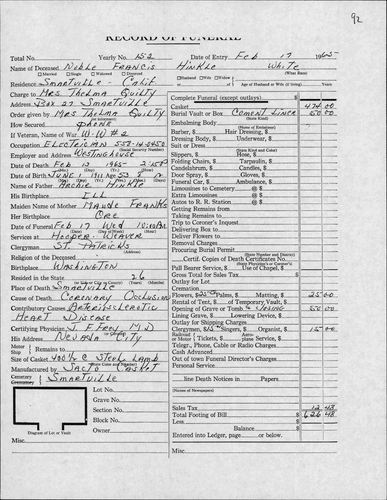 92
RECORD OF FUNERAL
Total No. Yearly No. 152 Date of Entry Feb 17 1965
Name of Deceased Noble Francis Hinkle White
(What Race)
Married Single Widowed Divorced Husband Wife Widow of Age of Husband or Wife (if living) Years
Residence Smartville - Calif
Charge to Mrs Thelma Quilty
Address Box 27 Smartville
Order given by Mrs Thelma Quilty
How Secured Phone
If Veteran, Name of War W-W #2
Occupation Electrician
(Social Security Number)
Employer and Address Westinghouse
Date of Death Feb 1965
Date of Birth June 1
Name of Father Archie Hinkle
His Birthplace Ill
Maiden Name of Mother Maude Franks
Her Birthplace Ore
Date of Funeral Feb 17 Wed
Services at Hooper-Weaver
Clergyman St Patricks
Religion of the Deceased
Birthplace Washington
Resided in the State 26
Place of Death Smartville
Cause of Death Coronary Occlusion
Contributing Causes Arteriosclerotic
Heart Disease
Certifying Physician J. F. Frey M D
His Address Nevada City
Motor Ship Remains to
Size of Casket Steel Lamb
Manufactured by Sacto Casket
Cemetery Crematory Smartville
Lot No.
Grave No.
Section No.
Block No.
Owner
Diagram of Lot or Vault
Misc.
Complete Funeral (except outlays) $
Casket 474 00
Burial Vault or Box Cement Liner 50 00
(State Kind)
Embalming Body
(Name of Embalmer)
Barber, $ Hair Dressing, $
Dressing Body, $ Underwear, $
Suit or Dress
(State Kind and Color)
Slippers, $ Hose, $
Folding Chairs, $ Tarpaulin, $
Candelabrum, $ Candles, $
Door Spray, $ Gloves, $
Funeral Car, $ Ambulance, $
Limousines to Cemetery @ $
Extra Limousines @ $
Autos to R. R. Station @ $
Getting Remains from
Taking Remains to
Trip to Coroner's Inquest
Delivering Box to
Deliver Flowers to
Removal Charges
Procuring Burial Permit
(State Number and District)
Certif. Copies of Death Certificates No.
Pall Bearer Service, $ Use of Chapel, $
Gross Total for Sales Tax $
Outlay for Lot
Cremation
Flowers, $ Palms, $ Matting, $ 25 00
Rental of Tent, $ of Temporary Vault, $
Opening of Grave or Tomb & Closing 50 00
Lining Grave, $ Lowering Device, $
Outlay for Shipping Charges
Clergyman, $15 Singers, $ Organist, $ 15 00
Railroad or Motor Tickets, $ plane Service, $
Telegr., Phone, Cable or Radio Charges
Cash Advanced
Out of town Funeral Director's Charges
Personal Service
line Death Notices in Papers
(Names of Newspapers)
Sales Tax 12 48
Total Footing of Bill $ 626 48
Less
Balance $
Entered into Ledger, page or below.
Misc.